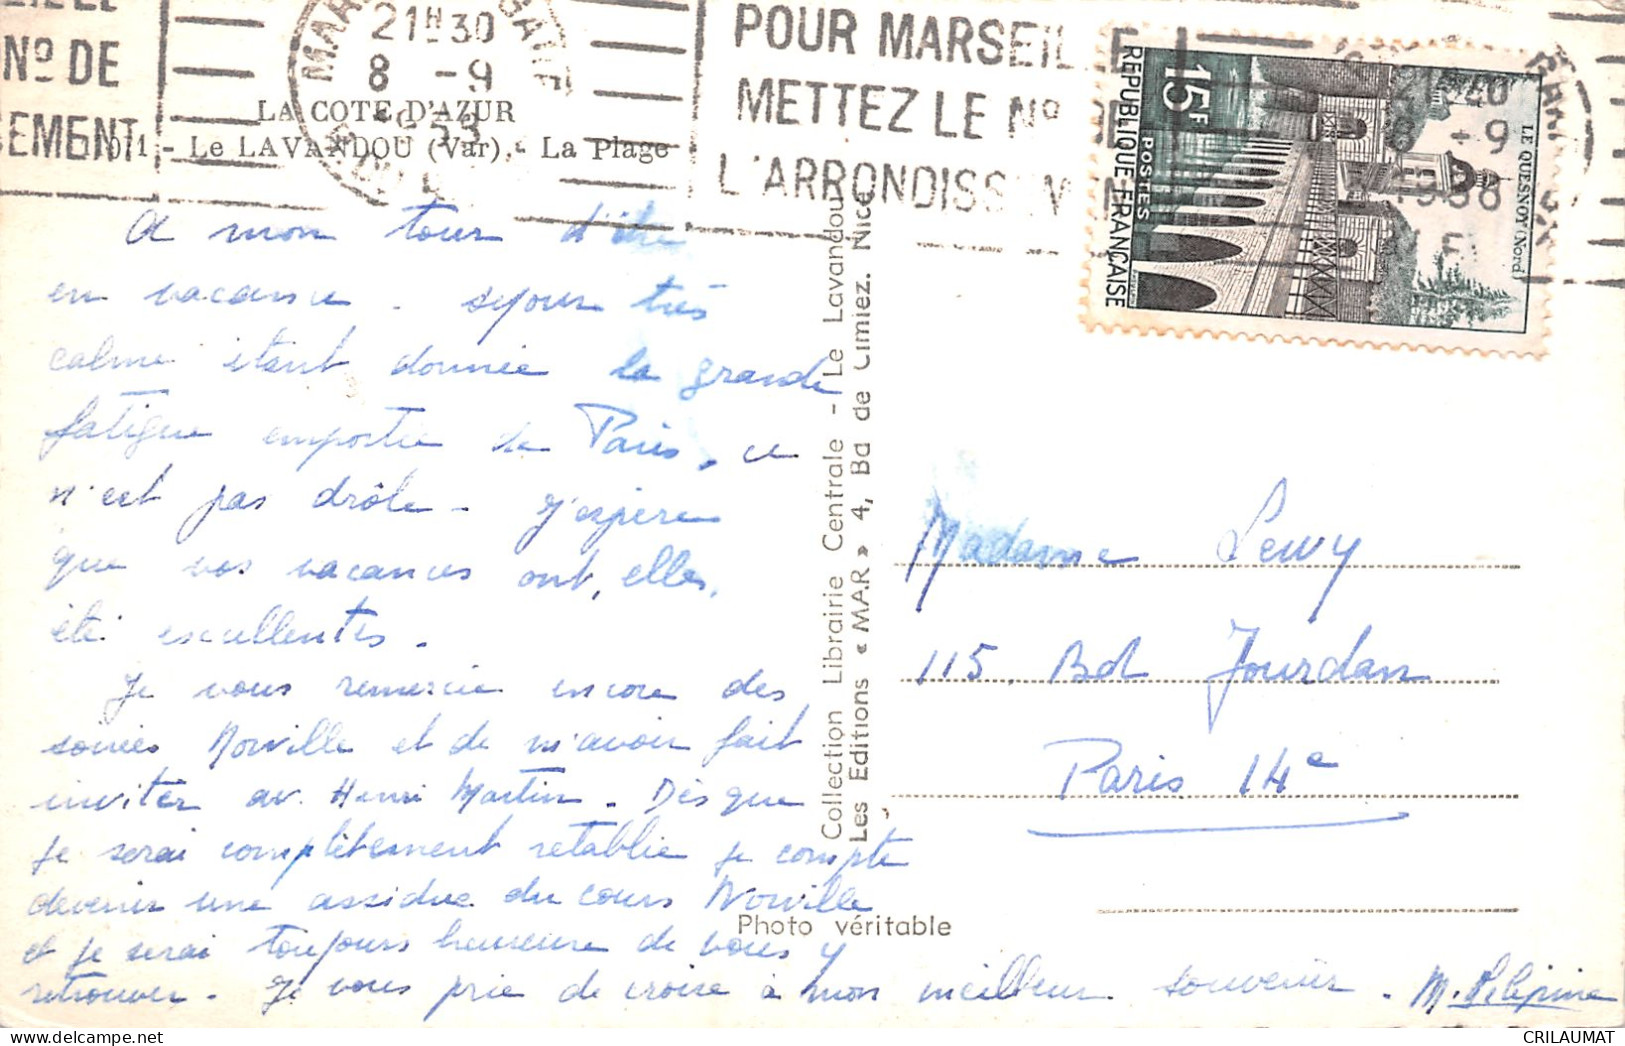 EILLE
Nº DE
EMENT
21H30
8 -9
POUR MARSEILLE
METTEZ LE Nº DE
L'ARRONDISSEMENT
LA COTE D'AZUR
Le LAVANDOU (Var) - La Plage
15F
POSTES
REPUBLIQUE FRANÇAISE
LE QUESNOY (Nord)
A mon tour d'être
en vacances. Séjour très
calme étant donnée la grande
fatigue emportée de Paris, ce
n'est pas drôle. J'espère
que vos vacances ont, elles,
été excellentes.
Je vous remercie encore des
soirées Norville et de m'avoir fait
inviter av. Henri Martin. Dès que
je serai complètement rétablie je compte
devenir une assidue du cours Norville
et je serai toujours heureuse de vous y
retrouver. Je vous prie de croire à mon meilleur souvenir.
Collection Librairie Centrale - Le Lavandou
Les Editions « MAR » 4, Bd de Cimiez. Nice
Photo véritable
Madame Lewy
115. Bd Jourdan
Paris 14e
CRILAUMAT